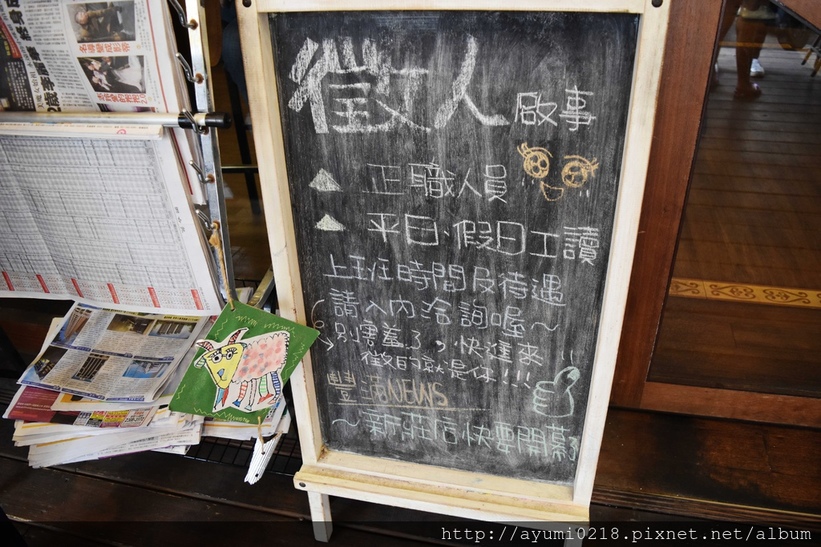 徵人啟事
正職人員
平日、假日工讀
上班時間及待遇
請入內洽詢喔～
別害羞了，快進來
徵的就是你！！！
豐滿NEWS
～新莊店快要開幕了
http://ayumi0218.pixnet.net/album